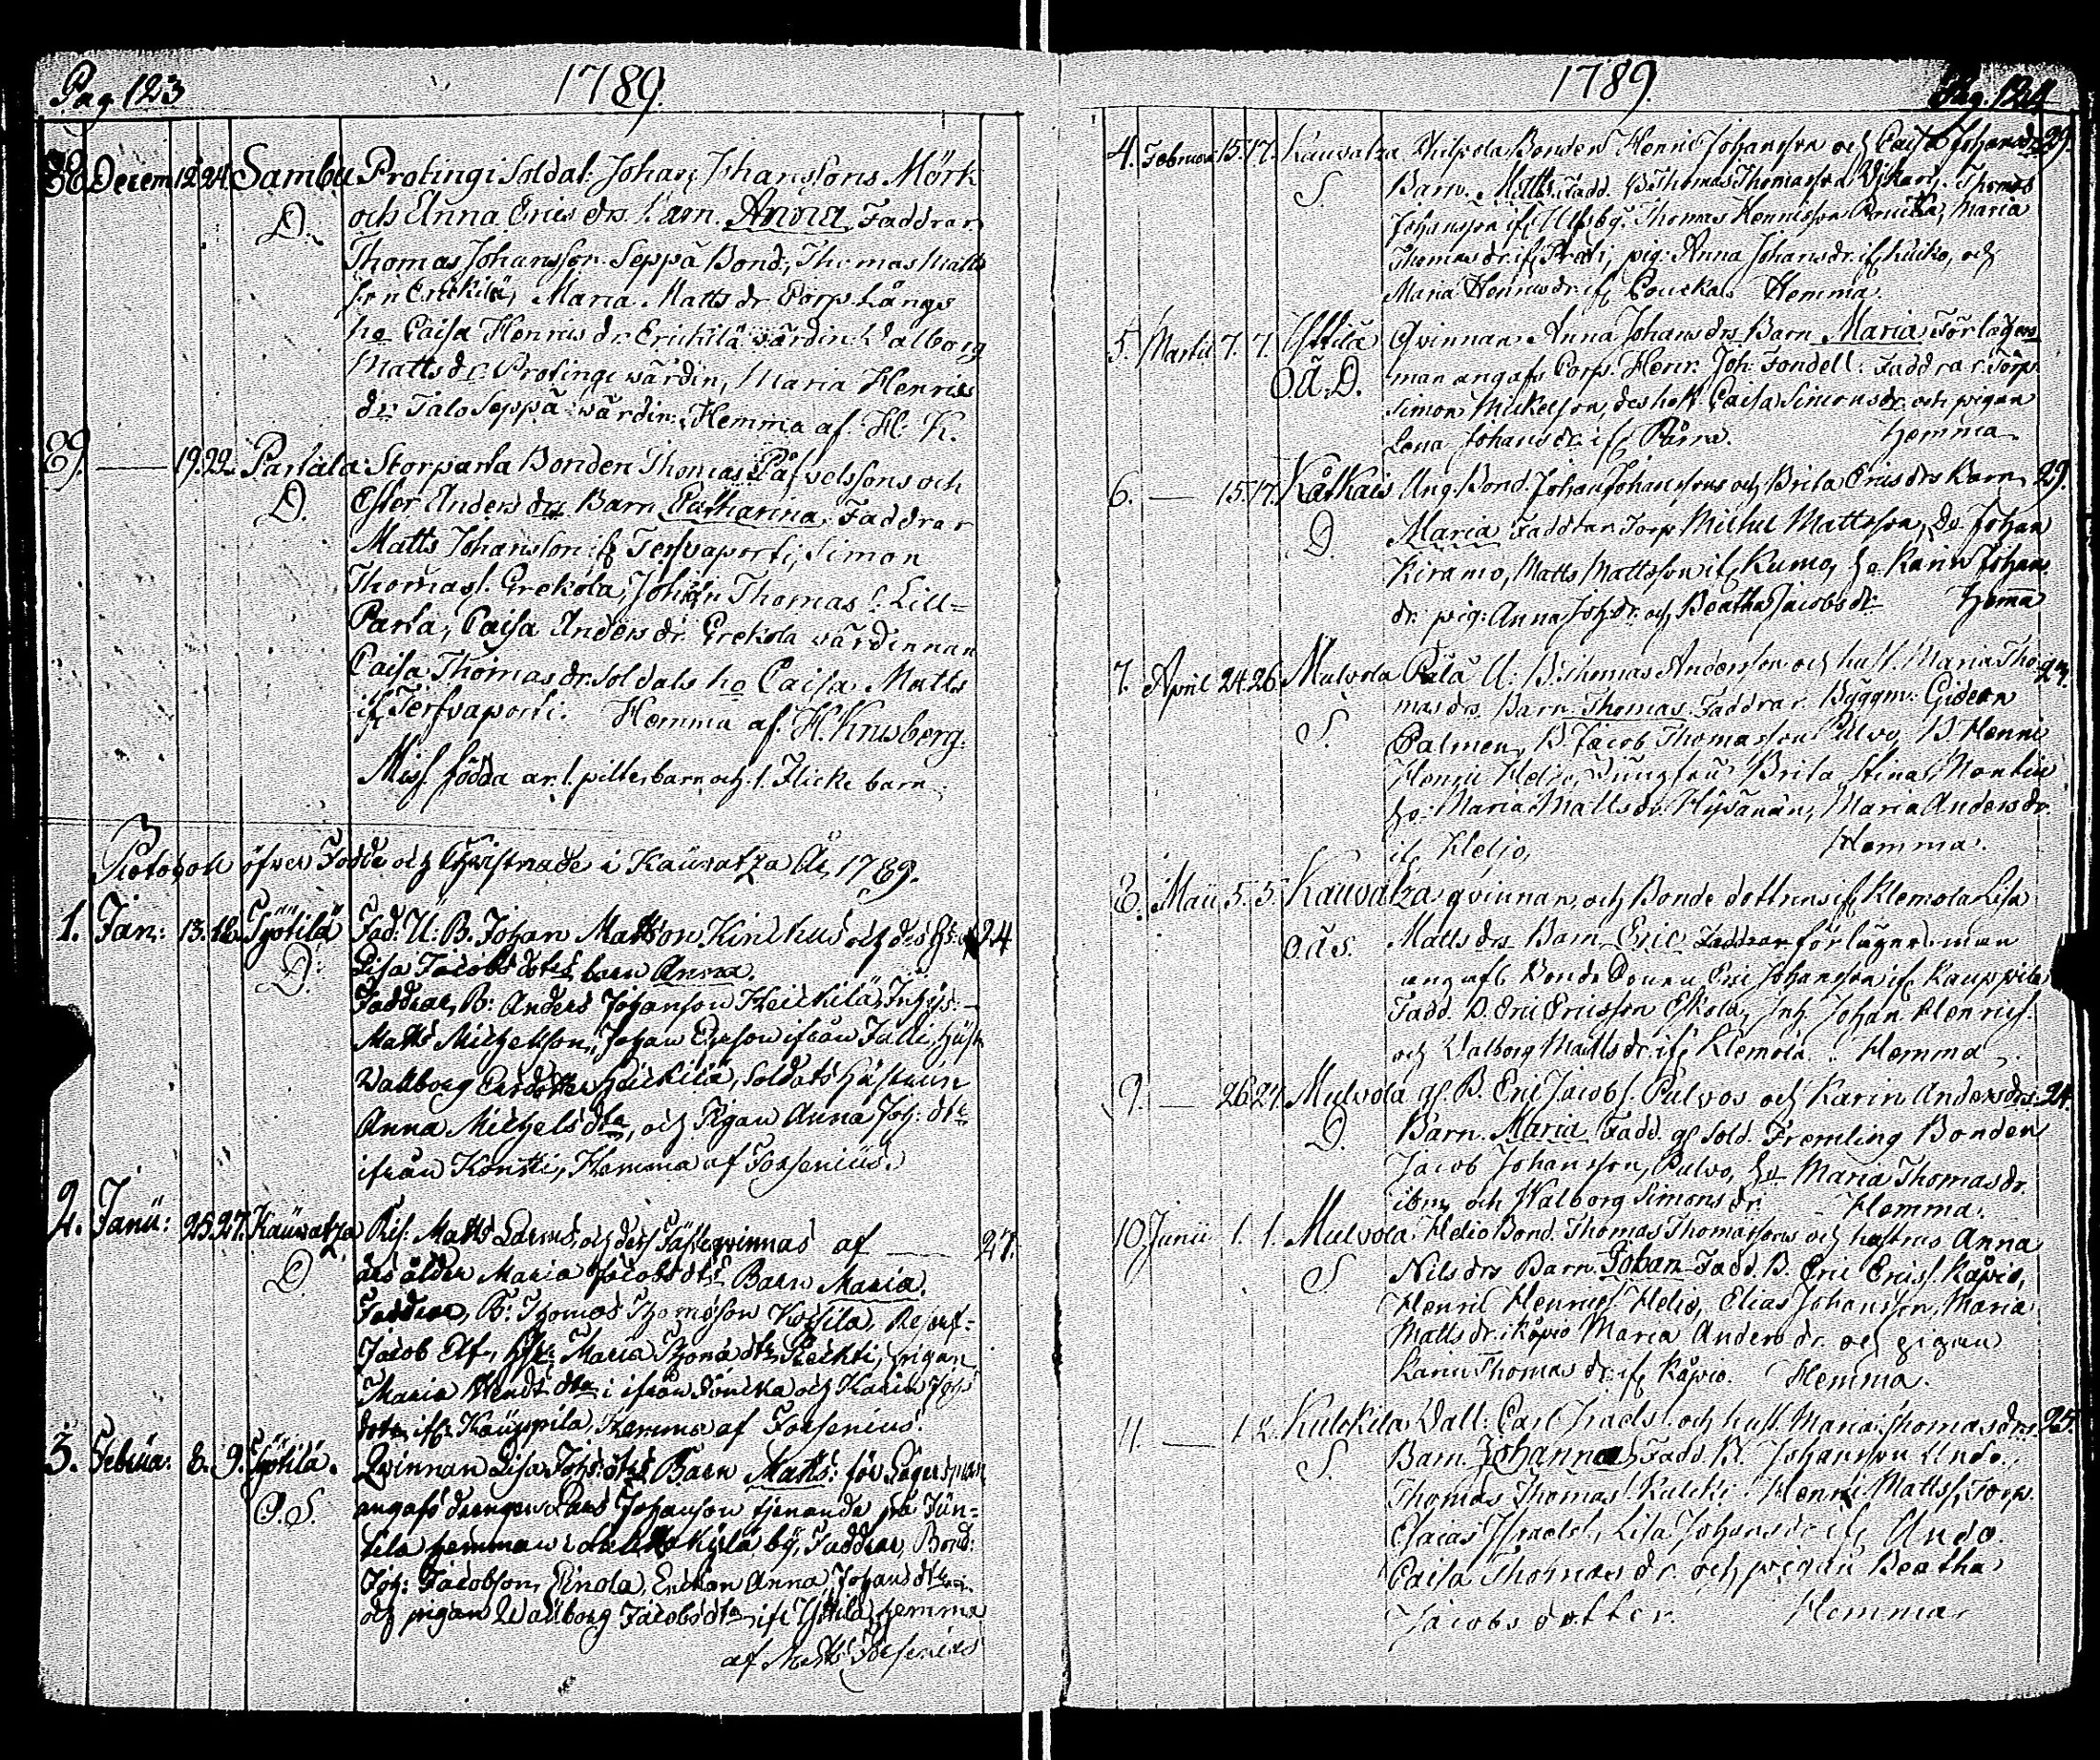 Pag. 123
1789.
88. Decem 12. 24. Sambu Protingi Soldat: Johan Johanssons Mörk
D. och Anna Erics drs barn. Anna Faddrar
Thomas Johansson Seppä Bond:, Thomas Matts
son Erickilä, Maria Matts dr Torp. Långs
ho Caisa Henrics dr Erickilä värdin: Valborg
Matts dr Protingi värdin, Maria Henrics
dr Talo Seppä värdin. Hemma af H. K.
89. — 19. 22. Parsala Storparta Bonden Thomas Påfvelssons och
D. Ester Anders drs Barn Catharina. Faddrar
Matts Johansson if Terfvaporti, Simon
Thomas s. Grekola, Johan Thomas s. Lill-
Parta, Caisa Anders dr. Grekola värdinnan
Caisa Thomas dr. Soldats ho Caisa Matts
if Terfvaporti. Hemma af H. Krusberg.
Miss. födda är 1. pilte barn och 1. Flicke barn
Protocoll öfver Födde och Christnade i Kauvatza År 1789.
1. Jan: 13. 18. Työtilä Fad: U: B. Johan Mattson Kirckus och des Hs: 24
D. Lisa Jacobs dotrs barn Anna.
Faddrar, B: Anders Johanson Heickilä, Inhys:
Matts Michelson, Johan Ericson ifrån Jalli, Hust
Wallborg Ersdotter Heickilä, Soldats Hustrun
Anna Michels dtr, och Pigan Anna Joh: dtr
ifrån Konsti, Hemma af Forsenius.
2. Janu: 25. 27. Kauvatza Ris: Matts Larms, och des Fästeqvinnas af — 27.
D. års ålder Maria Jacobs dtrs Barn Maria.
Faddrar, B: Thomas Thomsson Kossila, Reserf-
Jacob Elf, Hstr Maria Thoms dtr Reickti, pigan
Maria Hendr. dtr i ifrån Poucka och Karin Johs
dotr if: Kauppila. Hemma af Forsenius.
3. Februa: 8. 9. Työtilä. Qvinnan Lisa Johs: dtrs Barn Matts: för Lägersman
O.S. angafs drengen Lars Johanson tjenande på Jun-
tila hemman i by, Faddrar, Bond:
Joh: Jacobson, Pinola, Enckan Anna Johans dtr
och pigan Wallborg Jacobs dtr if: Yttilä, hemma
af Forsenius
1789.
Pag. 124
4. Februari 15. 17. Kauvatza Bonden Henric Johansson och Caisa Johans dr 29.
S. Barn. Matts. Fadd. B. Thomas Thomasson Thomas
Johansson if Ulfsby. Thomas Henrisson Maria
Thomas dr. if Prati, pig: Anna Johans dr. if och
Maria Henrics dr. if Pouckas Hemma.
5. Martii 7. 7. Yttilä Qvinnan Anna Johans drs Barn Maria För lägers
O.Ä.D. man angafs Corp. Henr: Joh: Fondell. Faddrar. Torp.
Simon Mickelson, des ho Caisa Simons dr. och pigan
Lena Johans dr. if Hemma.
6. — 15. 17. Kåtkais Ung. Bond. Johan Johanssons och Brita Erics drs Barn 29.
D. Maria Faddrar Torp. Michel Mattsson, Do Johan
Kiramo, Matts Mattsson if Kumo, ho Karin Johans
dr. pig: Anna Joh: dr. och Beatha Jacobs dr. Hemma
7. April 24. 26. Mulvola U: B. Thomas Andersson och hust. Maria Tho- 27.
S. mas drs Barn Thomas. Faddrar. Byggm: Gideon
Palmen, B. Jacob Thomasson Pulvo, B. Henric
Henric Heljo, Jungfru Brita Stina Montin
ho. Maria Matts dr. Hyvänän, Maria Anders dr.
if Heljo, Hemma.
8. Maii 5. 5. Kauvatza qvinnan och Bonde dottren if Klemola Lisa
O.Ä.S. Matts drs Barn Eric Faddrar för lägersman
angafs Bonde Sonen Eric Johansson if Kauppila
Fadd. B. Eric Ericsson Eskola, Inh. Johan Henrics.
och Valborg Matts dr. if Klemola. Hemma.
9. — 26. 27. Mulvola gl. B. Eric Jacobs. Pulvos och Karin Anders drs 24.
D. Barn. Maria Fadd. gl Sold. Fremling Bonden
Jacob Johansson, Pulvo, ho Maria Thomas dr.
ibm, och Walborg Simons dr. Hemma.
10. Junii 1. 1. Mulvola Heljo Bond. Thomas Thomassons och hustrus Anna
S Nils drs Barn. Johan Fadd. B. Eric Erics s. Kåpio,
Henric Henrics. Heljo, Elias Johansson, Maria
Matts dr. i Kåpio Maria Anders dr. och pigan
Karin Thomas dr. if Kåpio. Hemma.
11. — 1. 2. Kulckila Vall: Carl Israels s. och hust. Maria Thomas drs 25.
S. Barn. Johanna. Fadd. B. Johansson Undo.
Thomas Thomas s. Kulcki Henric Matts s. Torp.
Esaias Israels s. Lisa Johans dr. if Undo.
Caisa Thomas dr. och pigan Beatha
Jacobs dotter. Hemma.